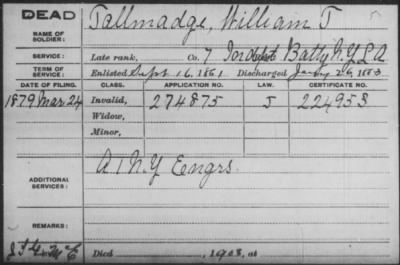 DEAD
NAME OF SOLDIER: Tallmadge, William T
SERVICE: Late rank, Co. 7 Indpt Batty N.Y. L A
TERM OF SERVICE: Enlisted Sept 16, 1861, Discharged 1863
DATE OF FILING. CLASS. APPLICATION NO. LAW. CERTIFICATE NO.
1879 Mar 24 Invalid, 274875 J 224953
Widow,
Minor,
ADDITIONAL SERVICES: A 1 N.Y Engrs.
REMARKS:
Died 190, at